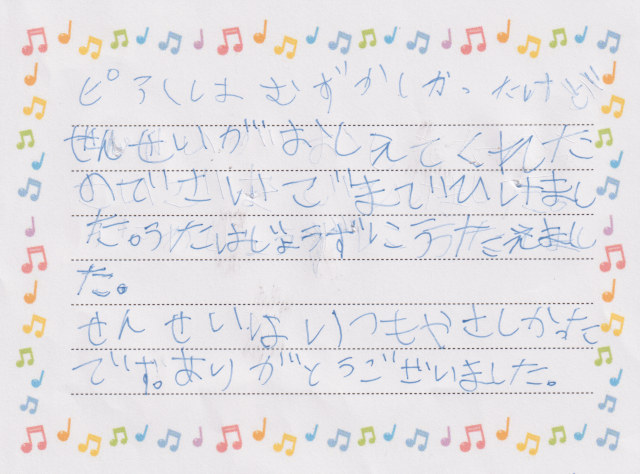 ピアノはむずかしかったけど
せんせいがおしえてくれた
のでさいごまでひけまし
た。うたはじょうずにうたえまし
た。
せんせいはいつもやさしかった
です。ありがとうございました。